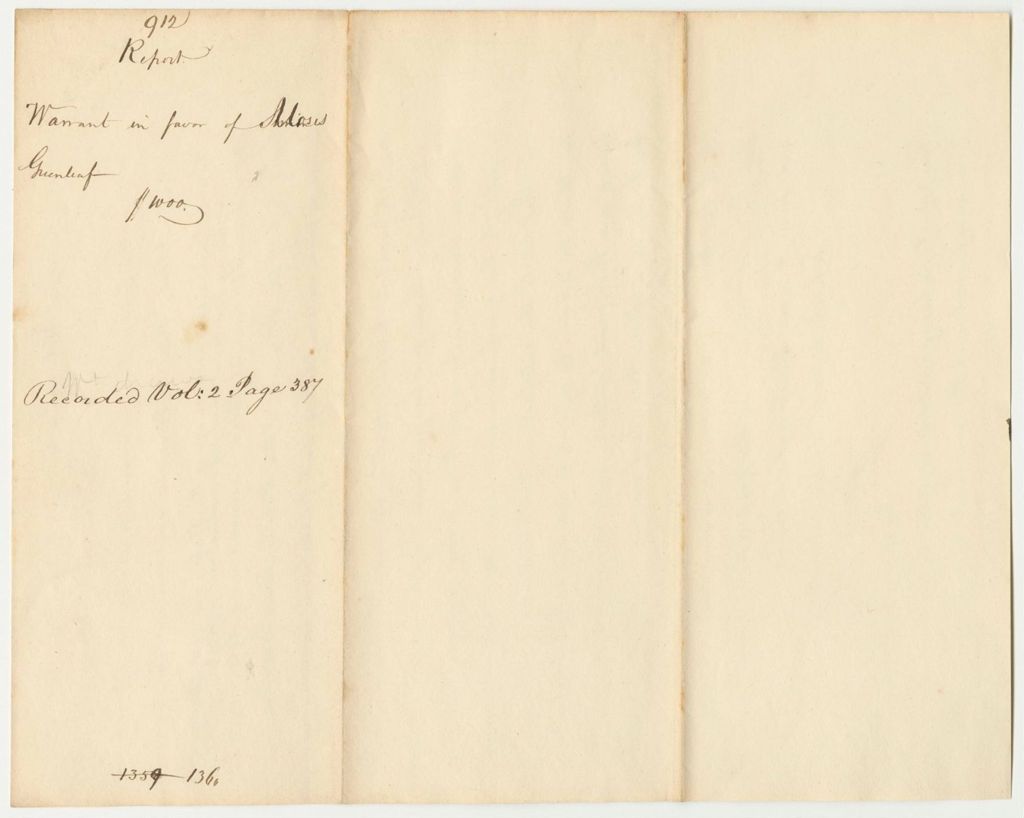 912
Report
Warrant in favor of Moses
Greenleaf
$1000.
Recorded Vol: 2 Page 387
1359 1360